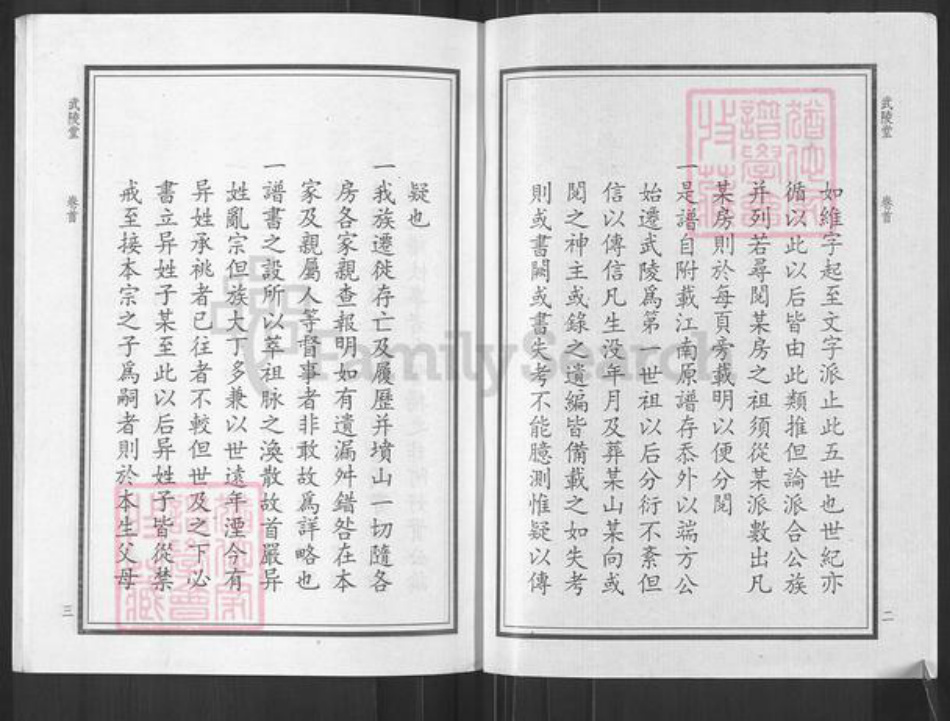 武陵堂 卷首 二
如維字起至文字派止此五世也世紀亦
循以此以后皆由此類推但論派合公族
并列若尋閱某房之祖須從某派數出凡
某房則於每頁旁載明以便分閱
一是譜自附載江南原譜存忝外以端方公
始遷武陵爲第一世祖以后分衍不紊但
信以傳信凡生没年月及葬某山某向或
閱之神主或錄之遺編皆備載之如失考
則或書闕或書失考不能臆測惟疑以傳
疑也
一我族遷徙存亡及履歷并墳山一切隨各
房各家親查報明如有遺漏舛錯咎在本
家及親屬人等督事者非敢故爲詳略也
一譜書之設所以萃祖脉之渙散故首嚴异
姓亂宗但族大丁多兼以世遠年湮今有
异姓承祧者已往者不較但世及之下必
書立异姓子某至此以后异姓子皆從禁
戒至接本宗之子爲嗣者則於本生父母
武陵堂 卷首 三
FamilySearch